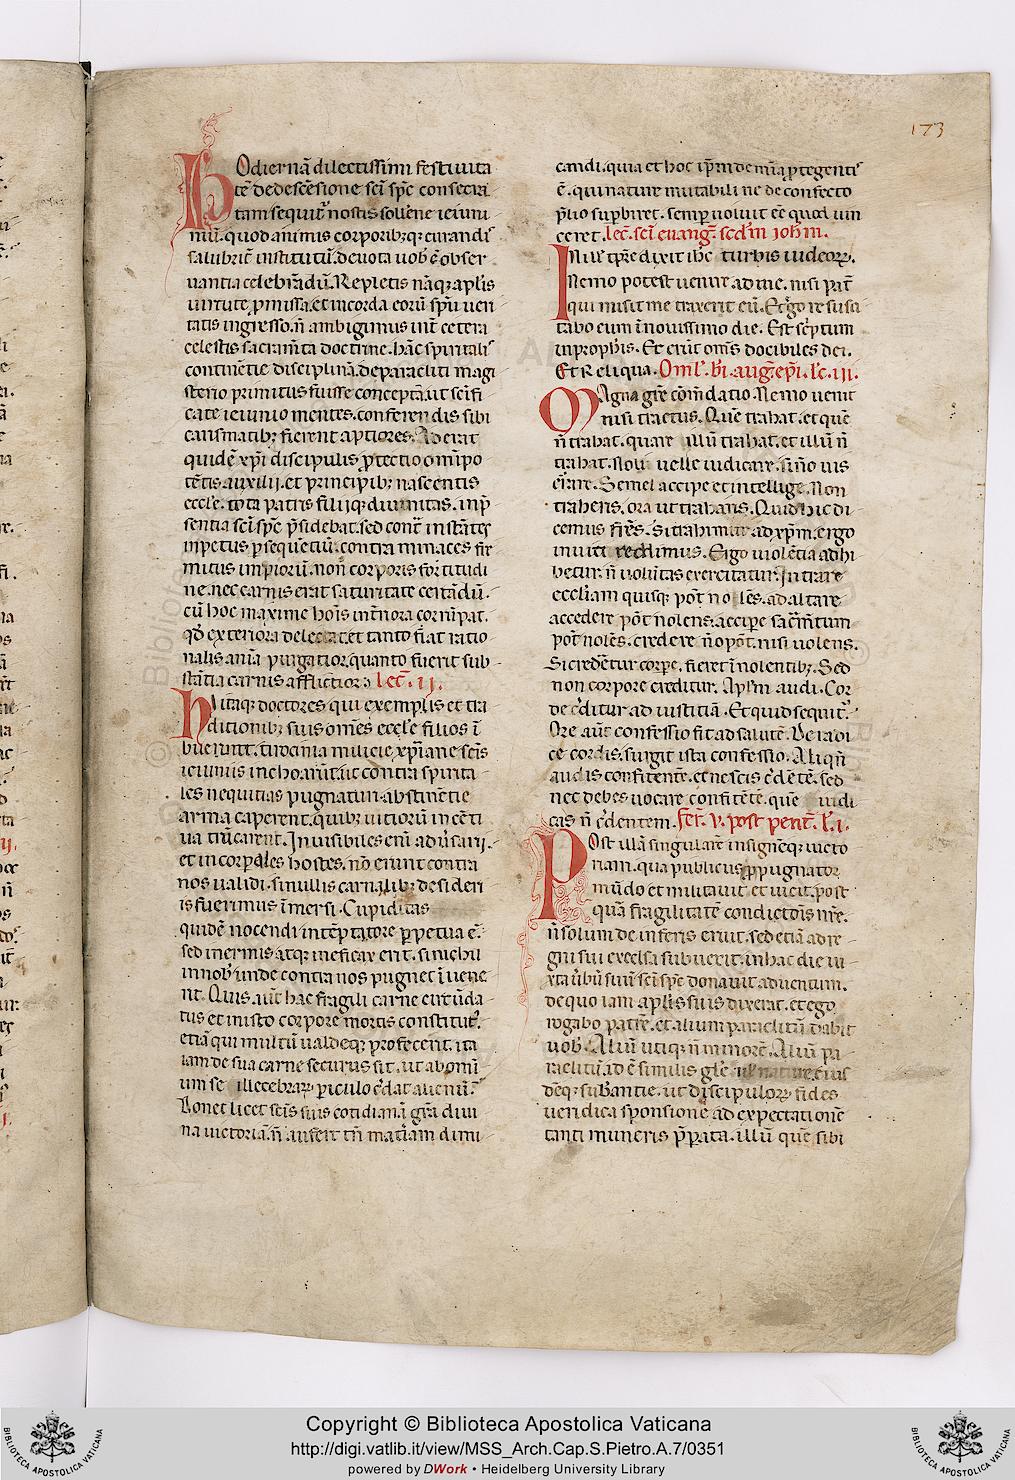 173
Hodiernã dilectissimi festiuita
tẽ de descẽsione scĩ sp̃c consecra
tam sequit̃ nostis soll'ẽne ieiuni
um. quod animis corporibꝫqꝫ curandis
salubrit̃ institutũ. deuota uob̃ ẽ obser
uantia celebrãdũ. Repletis nãqꝫ ap̃lis
uirtute p̃missa. et in corda eorũ sp̃u ueri
tatis ingresso. ñ ambigimus int̃ cetera
celestis sacram̃ta doctrine. hãc spiritalis
continẽtie disciplinã. de paracliti magi
sterio primitus fuisse conceptã. ut scĩfi
cate ieiunio mentes. conferendis sibi
carismatibꝫ fierent aptiores. Aderat
quidẽ xp̃i discipulis ꝓtectio om̃ipo
tẽtis auxilii. et principibꝫ nascentis
eccl'e. tota patris filiiqꝫ diuinitas. in p̃
sentia scĩ sp̃c p̃sidebat. sed cont̃ instãtes
inpetus ꝑsequẽtiũ. contra minaces fre
mitus impiorũ. non corporis fortitudi
ne. nec carnis erat saturitate certãdũ.
cũ hoc maxime hoĩs int̃iora corrũpat.
qd̃ exteriora delectat. et tanto fiat ratio
nalis aĩa purgatior. quanto fuerit sub
stãtia carnis afflictior. lec̃. ii.
Hi itaqꝫ doctores qui exemplis et tra
ditionibꝫ suis om̃es eccl'e filios ĩ
buerunt. tirocinia milicie xp̃iane scĩs
ieiuniis inchoarũt. ut contra spirita
les nequitias pugnaturi. abstinẽtie
arma caperent. quibꝫ uitiorũ incẽti
ua trũcarent. Inuisibiles eñi adũsarii.
et incorporales hostes. nõ erunt contra
nos ualidi. si nullis carnalibꝫ desideri
is fuerimus ĩmersi. Cupiditas
quidẽ nocendi in tẽptatore ꝑpetua ẽ.
sed inermis atqꝫ inefficax erit. si nichil
in nob̃ unde contra nos pugnet ĩuene
rit. Quis aũt hac fragili carne circũda
tus et in isto corpore mortis constitut'.
etiã qui multũ ualdeqꝫ profecerit. ita
iam de sua carne securus sit. ut ab omni
um se illecebraꝝ ꝑiculo c̃dat alienũ?
Donet licet scĩs suis cotidianã gr̃a diui
na uictoriã. ñ aufert tñ mat̃iam dimi
candi. quia et hoc ip̃m de mĩa ꝓtegentis
ẽ. qui nature mutabili ne de confecto
p̃lio supbiret. semp̃ uoluit eẽ quod uin
ceret. lec̃. scĩ euang̃. scd̃m ioħm.
In ill' tp̃re dixit ih̃c turbis iudeoꝝ.
Nemo potest uenire ad me. nisi pat̃
qui misit me traxerit eũ. Et ego resusci
tabo eum ĩ nouissimo die. Est sc̃ptum
in proph̃is. Et erũt om̃s docibiles dei.
Et Reliqua. Oml'. b̃i. aug̃. ep̃i. l'c. iii.
Magna gr̃e cõm̃datio. Nemo uenit
nisi tractus. Quẽ trahat. et quẽ
ñ trahat. quare illũ trahat. et illũ ñ
trahat. Noli uelle iudicare. si nõ uis
er̃are. Semel accipe et intellige. Non
traheris. ora ut traharis. Quid hic di
cemus fr̃es. Si trahimur ad xp̃m. ergo
inuiti credimus. Ergo uiolẽtia adhi
betur. ñ uolũtas exercitatur. Intrare
eccl'iam quisqꝫ pot̃ nolẽs. ad altare
accedere pot̃ nolens. accipe sacr̃mtum
pot̃ nolẽs. credere ñ pot̃. nisi uolens.
Si credẽtur corpe. fieret ĩ nolentibꝫ. Sed
non corpore creditur. Ap̃lm audi. Cor
de c̃ditur ad iustitiã. Et quid sequit̃.
Ore aũt confessio fit ad salutẽ. De radi
ce cordis. surgit ista confessio. Aliqñ
audis confitentẽ. et nescis c̃dẽtẽ. sed
nec debes uocare confitẽtẽ. quẽ iudi
cas ñ c̃dentem. Fer̃. v. post pent̃. l'. i.
Post illã singularẽ insignẽqꝫ uicto
riam. qua publicus ꝓpugnator
mũdo et militauit et uicit. post
quã fragilitatẽ condic̃ois nr̃e.
ñ solum de inferis eruit. sed etiã ad re
gni sui excelsa subuexit. in hac die iu
xta ũbũ suũ scĩ sp̃c donauit aduentum.
de quo iam ap̃lis suis dixerat. et ego
rogabo patrẽ. et alium paraclitũ dabit
uob̃. Aliũ utiqꝫ ñ minorẽ. Aliũ pa
raclitũ. ad ẽ similis gl'e ul' nature. eius
dẽqꝫ suƀantie. ut discipuloꝝ fides
ueridica sponsione ad expectationẽ
tanti muneris p̃ꝑata. illũ quẽ sibi
Copyright © Biblioteca Apostolica Vaticana
http://digi.vatlib.it/view/MSS_Arch.Cap.S.Pietro.A.7/0351
powered by DWork • Heidelberg University Library
BIBLIOTECA APOSTOLICA VATICANA
BIBLIOTECA APOSTOLICA VATICANA